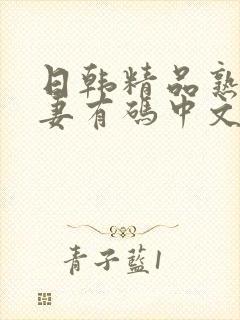 日韩精品熟
妻有码中文
青子藍1